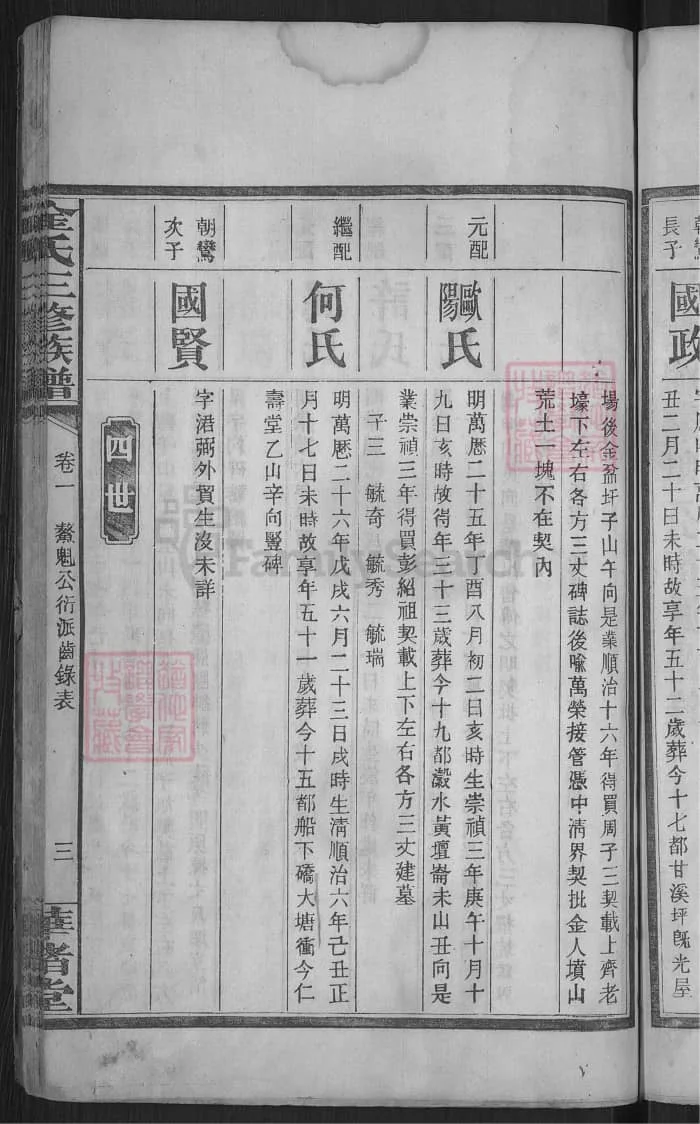 長子
國政
丑二月二十日未時故享年五十二歲葬今十七都甘溪坪旣光屋
場後金盆圩子山午向是業順治十六年得買周子三契載上齊老
壕下左右各方三丈碑誌後喩萬榮接管憑中淸界契批金人墳山
荒土一塊不在契內
元配
歐陽氏
明萬厯二十五年丁酉八月初二日亥時生崇禎三年庚午十月十
九日亥時故得年三十三歲葬今十九都瀫水黃壇崙未山丑向是
業崇禎三年得買彭紹祖契載上下左右各方三丈建墓
子三 毓奇 毓秀 毓瑞
繼配
何氏
明萬厯二十六年戊戌六月二十三日戌時生淸順治六年己丑正
月十七日未時故享年五十一歲葬今十五都船下礄大塘衝今仁
壽堂乙山辛向豎碑
朝鸞次子
國賢
字涒弼外貿生沒未詳
四世
氏三修族譜
卷一
鰲魁公衍派齒錄表
三
FamilySearch